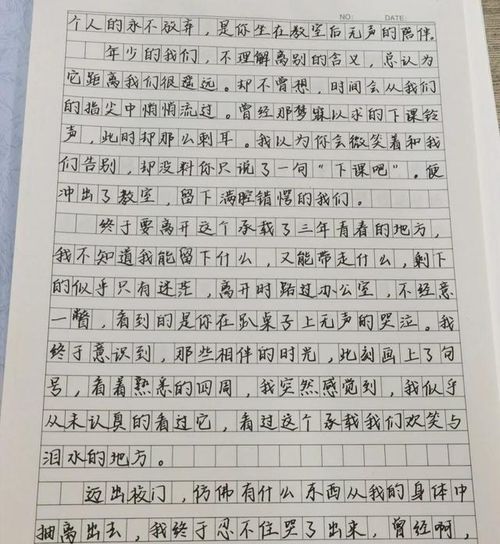 NO: DATE:
个人的永不放弃，是你坐在教室后无声的陪伴。
年少的我们，不理解离别的含义，总认为
它距离我们很遥远。却不曾想，时间会从我们
的指尖中悄悄流过。曾经那梦寐以求的下课铃
声，此时却那么刺耳。我以为你会微笑着和我
们告别，却没料你只说了一句“下课吧”。便
冲出了教室，留下满腔错愕的我们。
终于要离开这个承载了三年青春的地方，
我不知道我能留下什么，又能带走什么，剩下
的似乎只有迷茫，离开时路过办公室，不经意
一瞥，看到的是你在趴桌子上无声的哭泣。我
终于意识到，那些相伴的时光，此刻画上了句
号，看着熟悉的四周，我突然感觉到，我似乎
从未认真的看过它，看过这个承载我们欢笑与
泪水的地方。
迈出校门，仿佛有什么东西从我的身体中
抽离出去，我终于忍不住哭了出来，曾经啊，